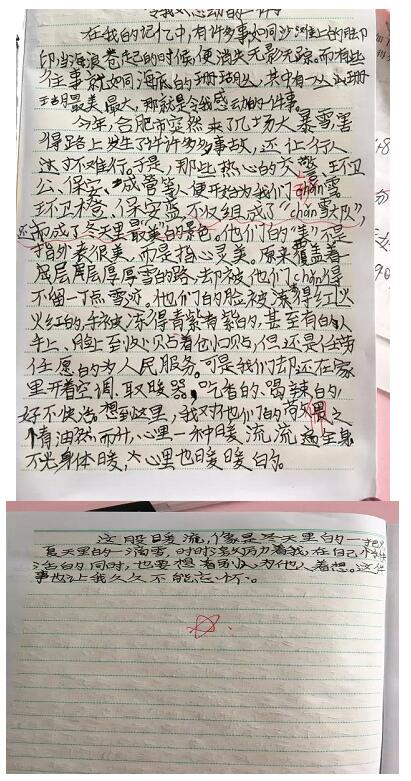 令我感动的一件事
在我的记忆中,有许多事,如同沙滩上的脚
印当海浪卷起的时候,便消失无影无踪。而有些
往事就如同海底的珊瑚丛,其中有一丛珊
瑚最美最大,那就是令我感动的一件事。
今年,合肥市突然来了几场大暴雪,害
得路上发生了许许多多事故,还让行人
过才不难行。于是,那些热心的交警、环卫
公、保安、城管等人便开始为我们铲chan雪
环卫橙、保安蓝、不仅组成了“chǎn雪大队”,
还而成了冬天里最美的景色。他们的“美”不是
指外表很美,而是指心灵美。原来覆盖着一
层层厚厚雪的路,却被他们chǎn得
不留一丁点雪迹。他们的脸被冻得红火
火红的,手被冻得青紫青紫的,甚至有的人
手上、脸上至伤口贴着创口贴,但还是任劳
任愿的为人民服务。可是我们却还在家
里开着空调,取暖器,吃香的、喝辣的,
好不快活。想到这里,我对他们的敬畏之
情油然而升,心里一种暖流流遍全身
不光身体暖,心里也暖暖的。
这股暖流,像是冬天里的一把火
夏天里的一滴雪,时时激励着我,在自己快乐
活的同时,也要想着别人,为他人着想。这件
事也让我久久不能忘怀。